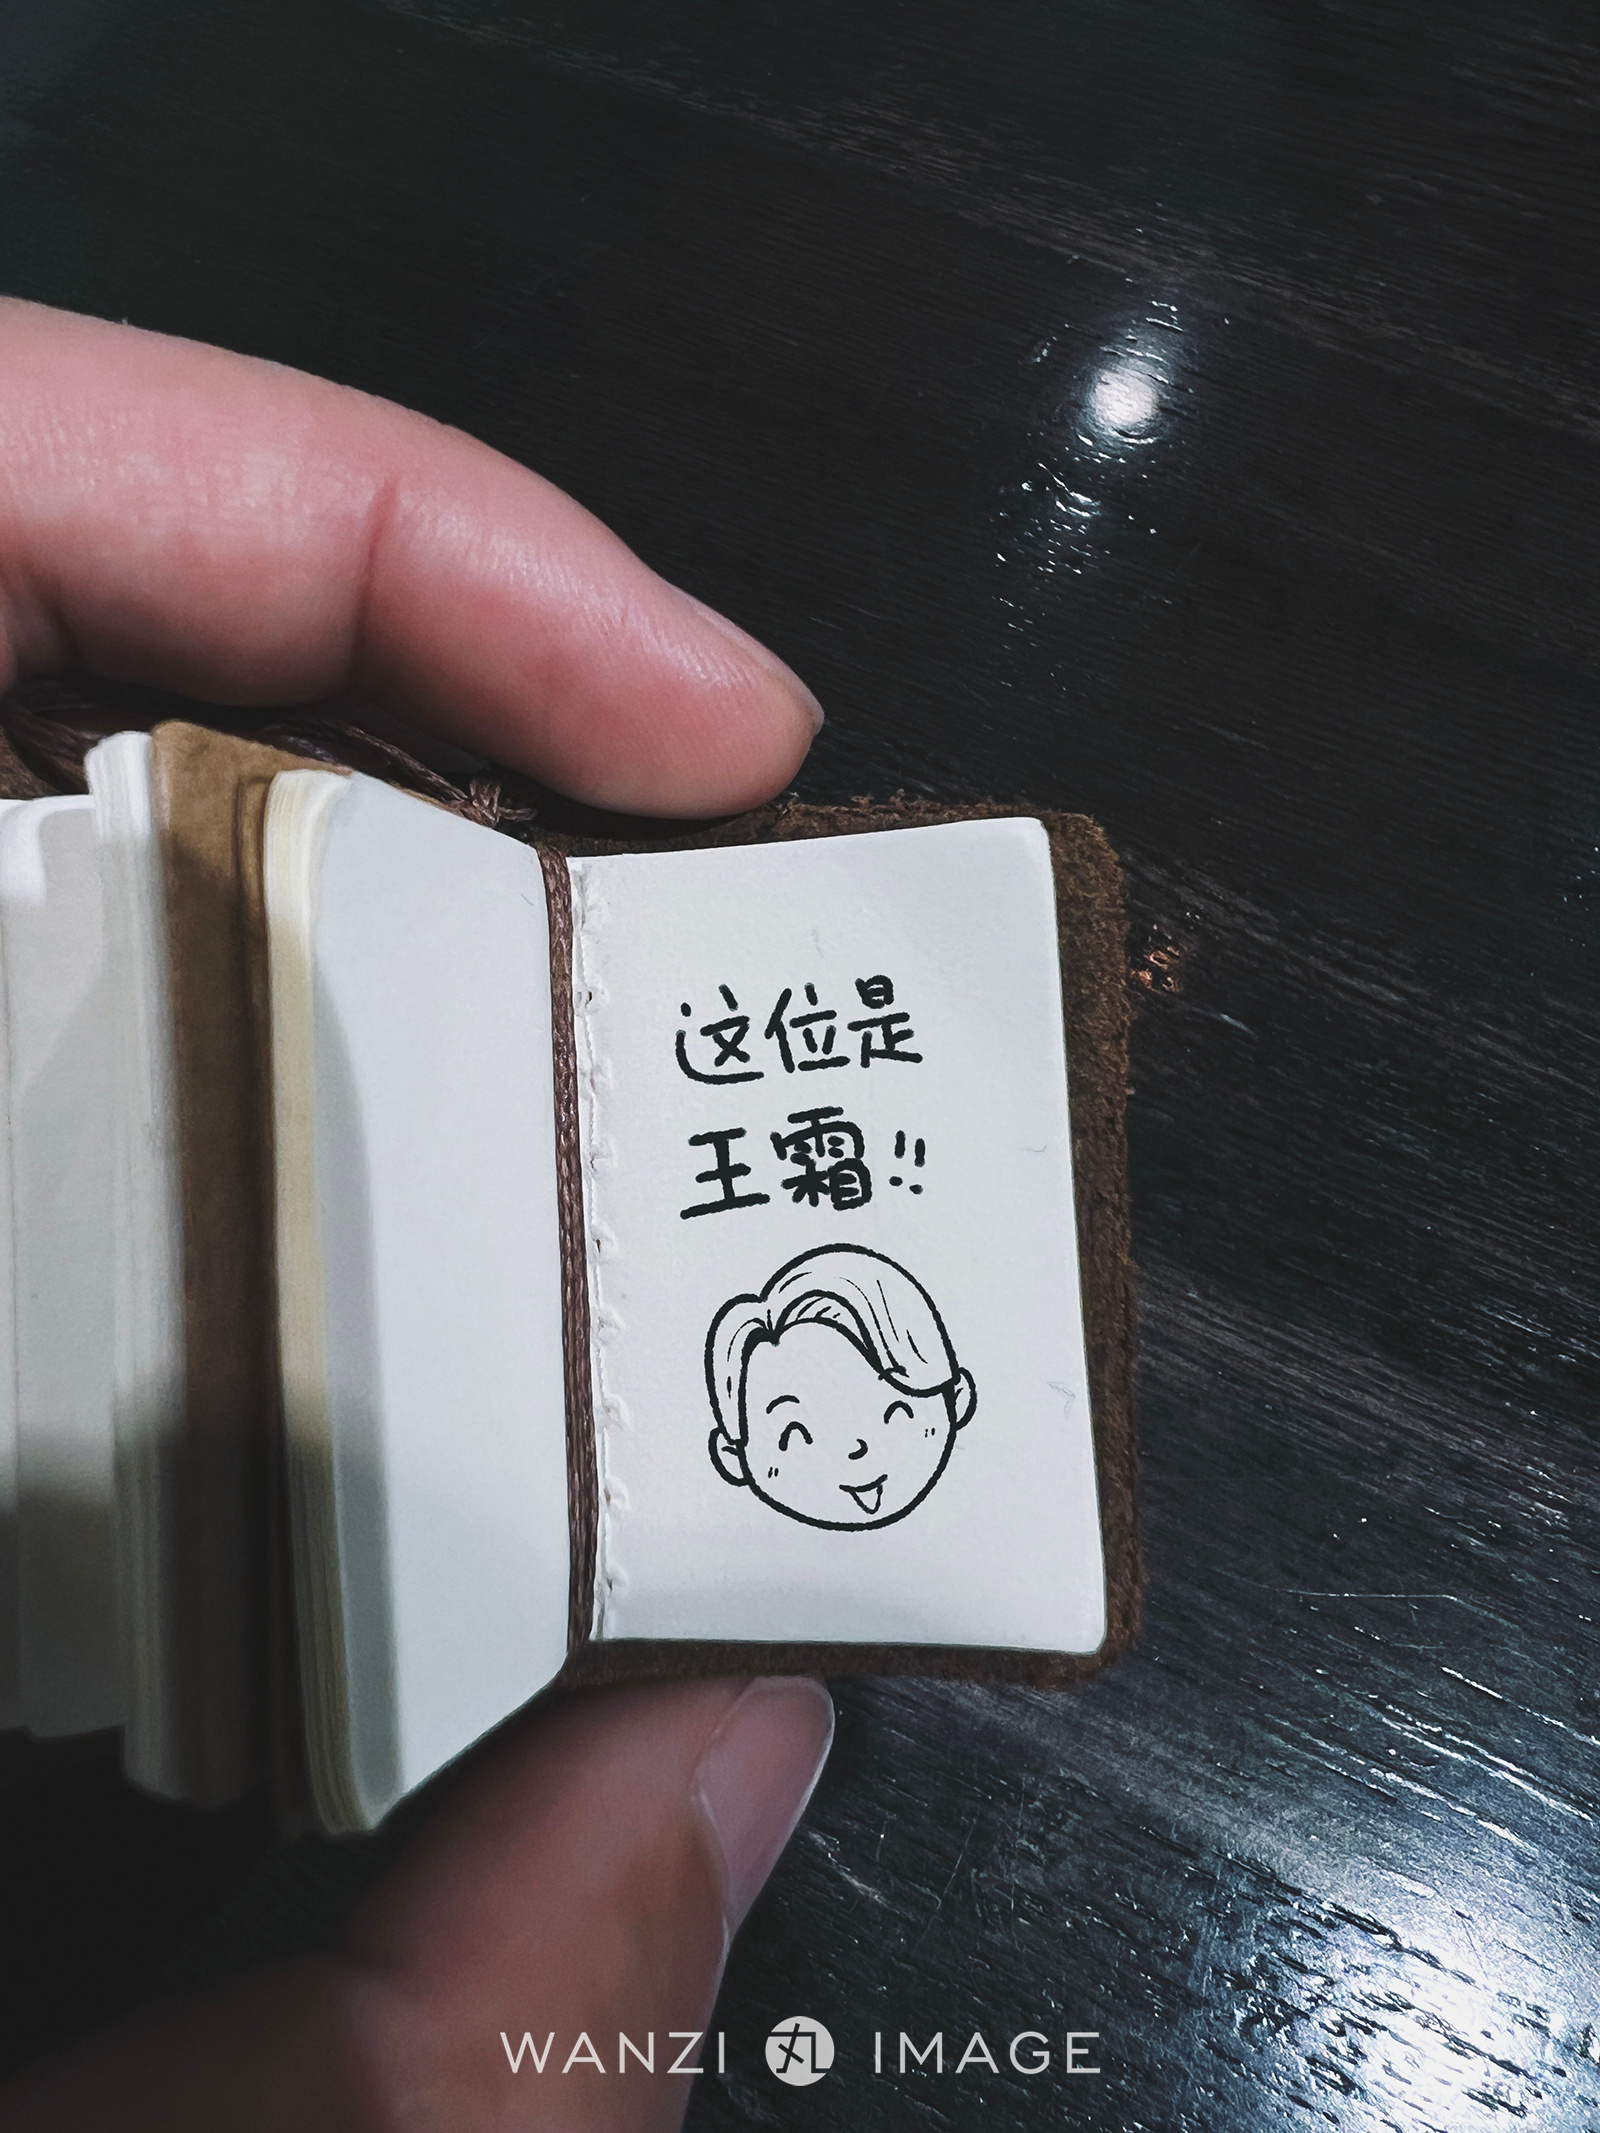 这位是
王霜!!
WANZI 丸 IMAGE